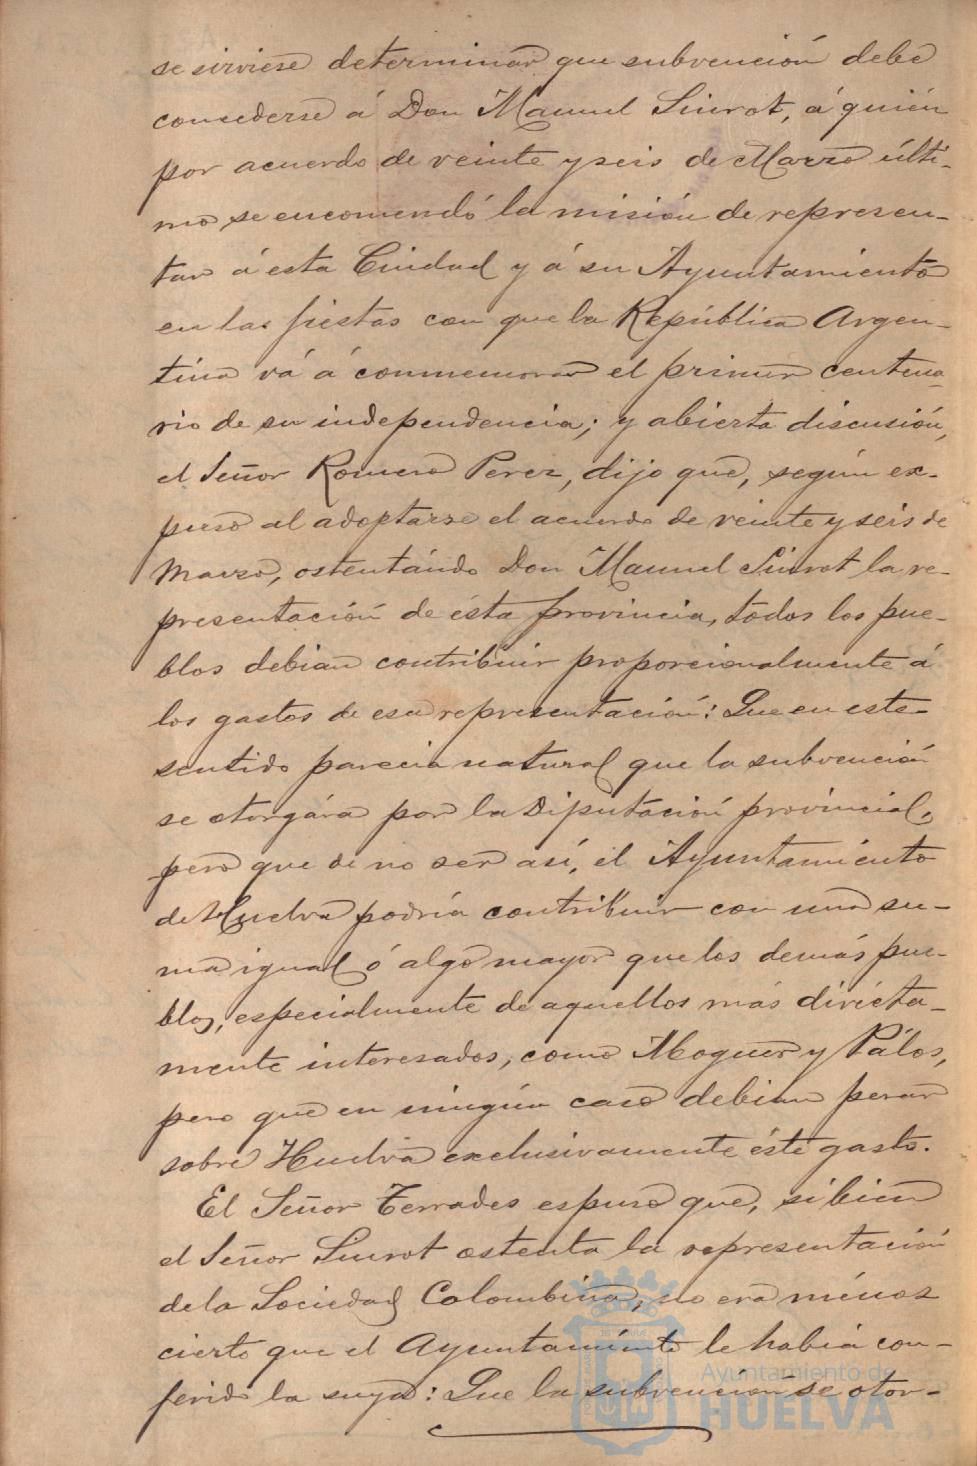 se sirviese determinar que subvención debe
concederse á Don Manuel Siurot, á quién
por acuerdo de veinte y seis de Marzo últi-
mo se encomendó la misión de represen-
tar á esta Ciudad y á su Ayuntamiento
en las fiestas con que la República Argen-
tina vá á conmemorar el primer centena-
rio de su independencia; y abierta discusión,
el Señor Romero Perez, dijo que, según ex-
puso al adoptarse el acuerdo de veinte y seis de
Marzo, ostentándo Don Manuel Siurot la re-
presentación de ésta provincia, todos los pue-
blos debian contribuir proporcionalmente á
los gastos de esa representación: Que en este
sentido parecia natural que la subvención
se otorgára por la Diputación provincial,
pero que de no ser así, el Ayuntamiento
de Huelva podría contribuir con una su-
ma igual ó algo mayor que los demás pue-
blos, especialmente de aquellos más directa-
mente interesados, como Moguer y Pálos,
pero que en ningún caso debian pesar
sobre Huelva exclusivamente éste gasto.
El Señor Terrades espuso que, si bien
el Señor Siurot ostenta la representación
de la Sociedad Colombina, no era ménos
cierto que el Ayuntamiento le habia con-
ferido la suya: Que la subvención se otor-
Ayuntamiento de
HUELVA